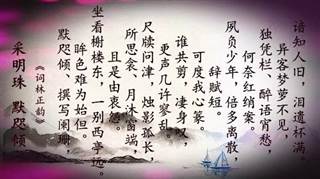 谙知人旧，泪遗杯满。
异客梦萝不见，
独凭栏、醉语宵愁，
何奈红绡案。
夙负少年，倍多离散，
辞赋短。
可度我心篆。
谁共剪，凄身叹，
更声几许寥乱。
尺牍问津，烛影孤长，
所思衾、月沐窗端，
且是由衷怨。
坐看榭楼东，一别西亭远。
眸色难为始但。
默咫倾、撰写阑珊，
《词林正韵》
采明珠 默咫倾